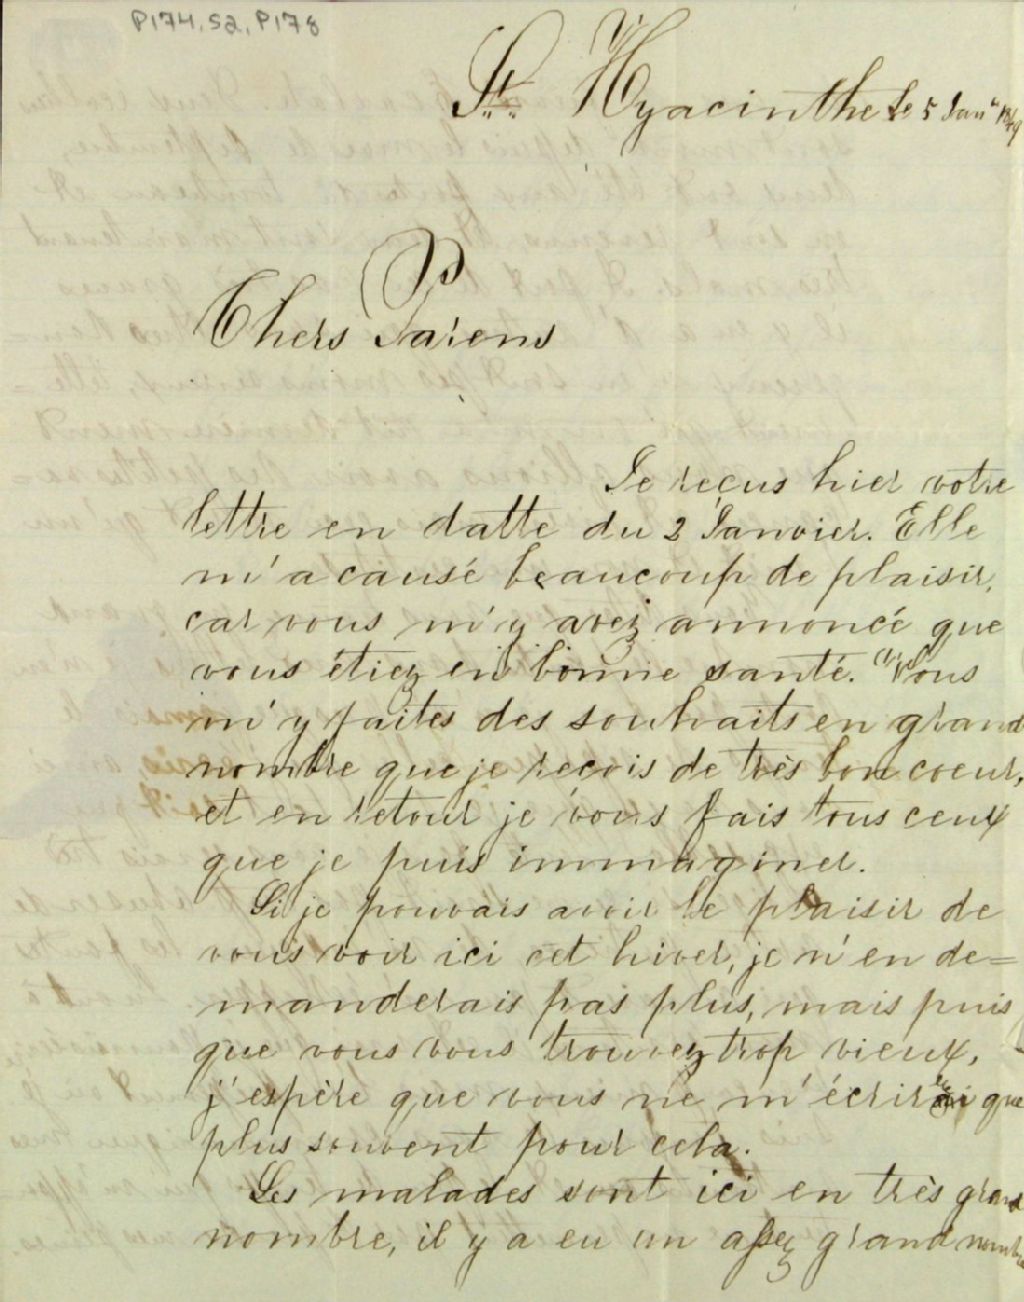 P174,S2,P178
St. Hyacinthe Le 5 Janr
Chers Parens
Je reçus hier votre
lettre en datte du 2 Janvier. Elle
m'a causé beaucoup de plaisir,
car vous m'y avez annoncé que
vous étiez en bonne santé. Vous
m'y faites des souhaits en grand
nombre que je reçois de très bon coeur,
et en retour je vous fais tous ceux
que je puis immaginer.
Si je pouvais avoir le plaisir de
vous voir ici cet hiver, je n'en de=
manderais pas plus, mais puis
que vous vous trouvez trop vieux,
j'espère que vous ne m' que
plus souvent pour cela.
Les malades sont ici en très grand
nombre, il y a eu un assez grand nombre